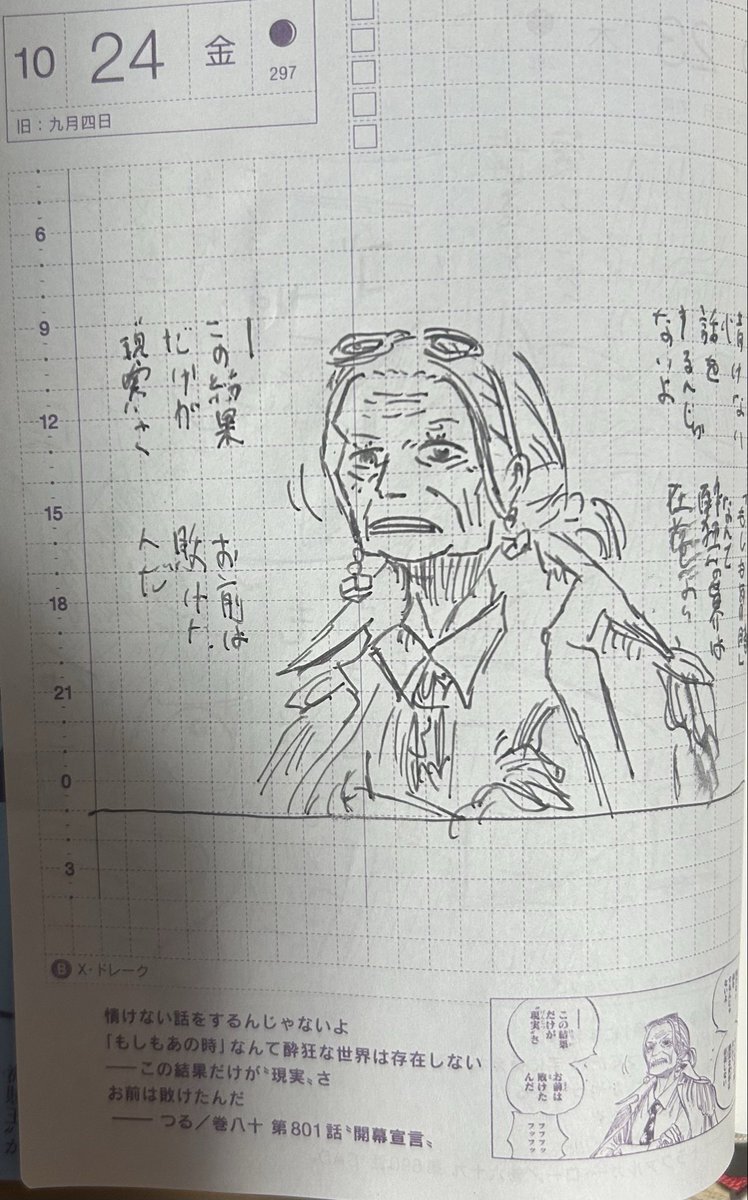 10
24
金
297
旧：九月四日
6
9
12
15
18
21
0
3
情けない
話を
するんじゃ
ないよ
「もしもあの時」
なんて
酔狂な世界は
存在しない
―
この結果
だけが
現実さ
お前は
敗けた
んだ
B X・ドレーク
情けない話をするんじゃないよ
「もしもあの時」なんて酔狂な世界は存在しない
――この結果だけが〝現実〟さ
お前は敗けたんだ
―― つる／巻八十 第801話〝開幕宣言〟
―
この結果
だけが
〝現実〟さ
お前は
敗けた
んだ
フフフフ
フッフッ